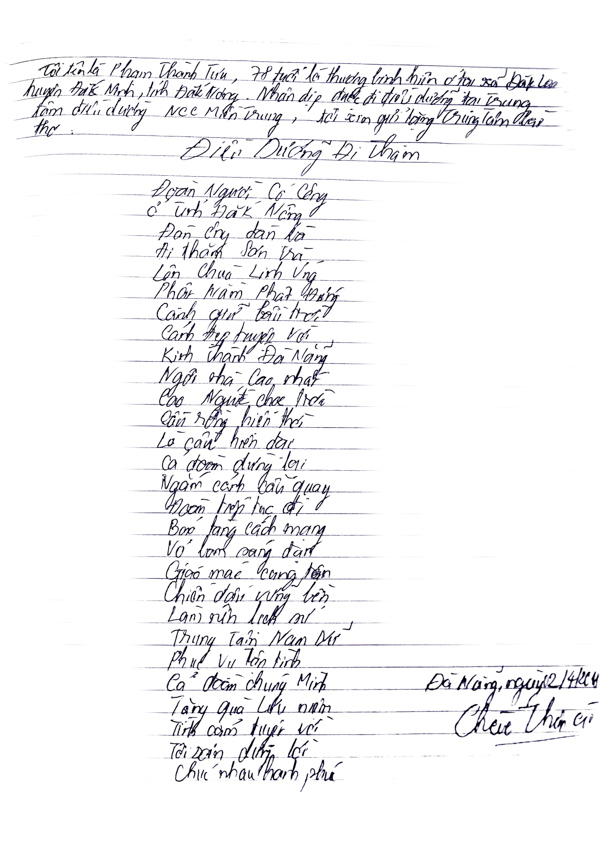 Tôi tên là Phạm Thành Tựu, 78 tuổi là thương binh hiện ở tại xã Đăk Lao
huyện Đăk Minh, tỉnh Đăk Nông. Nhân dịp được đi điều dưỡng tại Trung
tâm điều dưỡng NCC Miền Trung, tôi xin gửi tặng Trung tâm bài
thơ.
Điều Dưỡng Đi Thăm
Đoàn Người Có Công
ở tỉnh Đăk Nông
Đàn
Đi thăm Sơn Trà
Lên Chùa Linh Ứng
Phật nằm Phật đứng
Cảnh giữ bầu trời
Cảnh đẹp tuyệt vời
Kinh thành Đà Nẵng
Ngôi nhà cao nhất
Cao Người chọc trời
Cầu rồng hiện thời
Là cầu hiện đại
Cả đoàn dừng lại
Ngắm cảnh cầu quay
Đoàn tiếp tục đi
Bảo tàng cách mạng
Vỏ bom sáng đạn
Giáo mác cung tên
Chiến đấu vững bền
Làm nên lịch sử
Trung Tâm Nam Nữ
Phục vụ tận tình
Cả đoàn chúng Mình
Tặng quà lưu niệm
Tình cảm tuyệt vời
Tôi xin dừng lời
Chúc nhau hạnh phúc
Đà Nẵng, ngày 12/4/